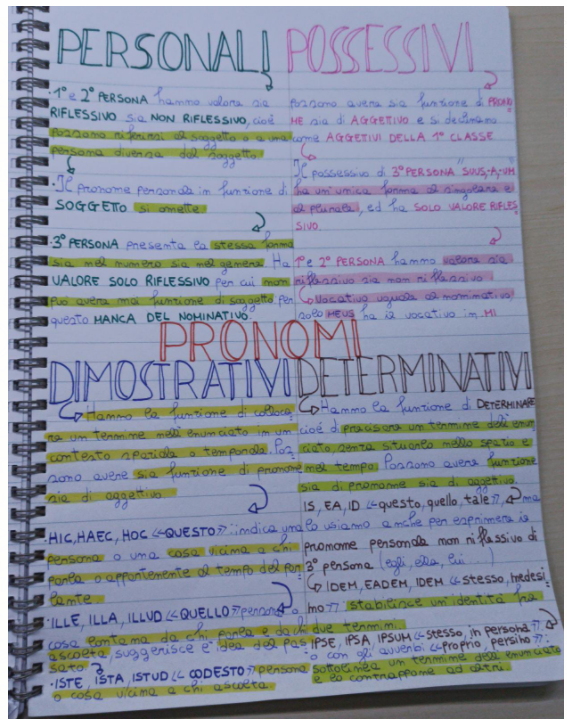 PERSONALI
1° e 2° PERSONA hanno valore sia
RIFLESSIVO sia NON RIFLESSIVO, cioè
possono riferirsi al soggetto o a una
persona diversa dal soggetto
Il pronome personale in funzione di
SOGGETTO si omette
3° PERSONA presenta la stessa forma
sia nel numero sia nel genere. Ha
VALORE SOLO RIFLESSIVO per cui non
può avere mai funzione di soggetto per
questo MANCA DEL NOMINATIVO.
POSSESSIVI
Possono avere sia funzione di PRONO
ME sia di AGGETTIVO e si declinano
come AGGETTIVI DELLA 1° CLASSE
Il possessivo di 3° PERSONA "SUUS,-A,-UM"
ha un'unica forma al singolare e
al plurale, ed ha SOLO VALORE RIFLES
SIVO.
1° e 2° PERSONA hanno valore sia
riflessivo sia non riflessivo
vocativo uguale al nominativo,
solo MEUS ha il vocativo in MI
PRONOMI
DIMOSTRATIVI
Hanno la funzione di colloca
re un termine nell'enunciato in un
contesto spaziale o temporale. Pos
sono avere sia funzione di pronome
sia di aggettivo
HIC, HAEC, HOC «QUESTO»: indica una
persona o una cosa vicina a chi
parla o appartenente al tempo del par
lante
ILLE, ILLA, ILLUD «QUELLO» persona o
cosa lontana da chi parla e da chi
ascolta, suggerisce l'idea del pas
sato.
ISTE, ISTA, ISTUD «CODESTO» persona
o cosa vicina a chi ascolta.
DETERMINATIVI
Hanno la funzione di DETERMINARE
cioè di precisare un termine dell'enun
ciato senza situarlo nello spazio e
nel tempo Possono avere funzione
sia di pronome sia di aggettivo.
IS, EA, ID «questo, quello, tale», ma
lo usiamo anche per esprimere il
pronome personale non riflessivo di
3° persona (egli, ella, lui
IDEM, EADEM, IDEM «stesso, medesi
mo» stabilisce un'identità tra
due termini.
IPSE, IPSA, IPSUM «stesso, in persona»
o con gli avverbi «proprio, persino»:
sottolinea un termine dell'enunciato
e lo contrappone ad altri.